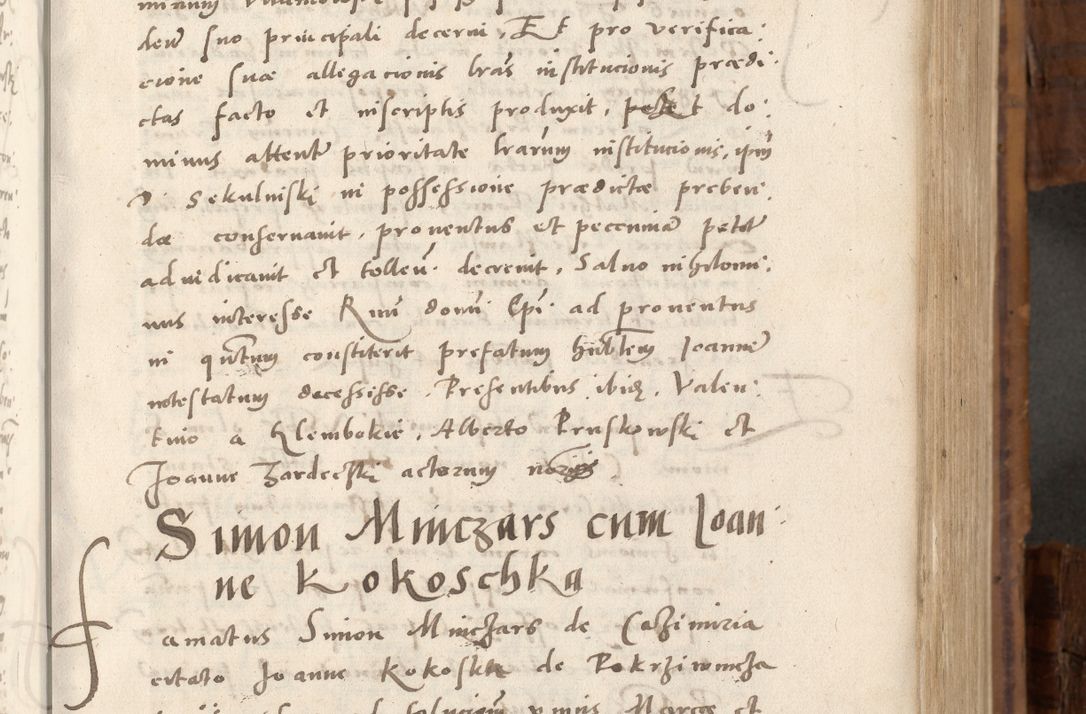 den̄ suo principali decerni, Et pro verifica:
cione suæ allegacionis lrās institucionis prædi:
ctas facto et inscriptis produxit, petit do:
minus attentꝭ prioritate lrarum institucionis, ipm̄
D Sekulniski in possessione prædictæ preben:
dæ conservavit, proventus et pecuniā petitꝭ
adiudicavit et tollen̄ decrevit, Salvo nihilomi:
nus interesse Rmi dom̄ Ep̄i ad proventus
in qūtum constiterit prefatum hn̄blem Joannē
intestatum decessisse. Presentibus ibidꝫ, Valen:
tino a Glembokie, Alberto Pruskowski et
Joanne Zardecski actorum notrijs
Simon Minczars cum Joan:
ne Kokoschka
famatus Simon Minczars de Cazimiria
citato Joanne Kokoska de Pokrziwnicza